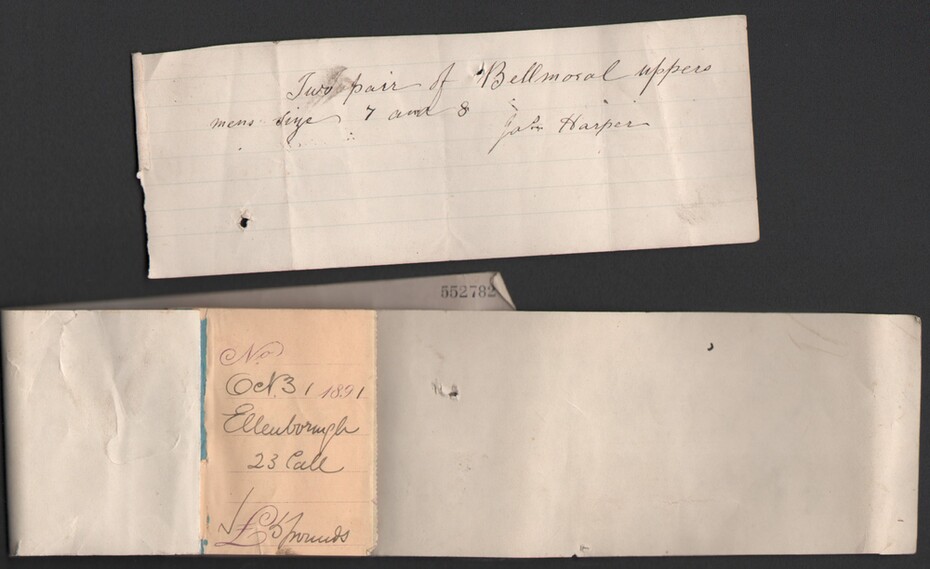 Two pair of Bellmoral uppers
mens size 7 and 8 John Harper
552782
No
Oct. 31 1891
Ellenborough
23 Call
£ 5 pounds